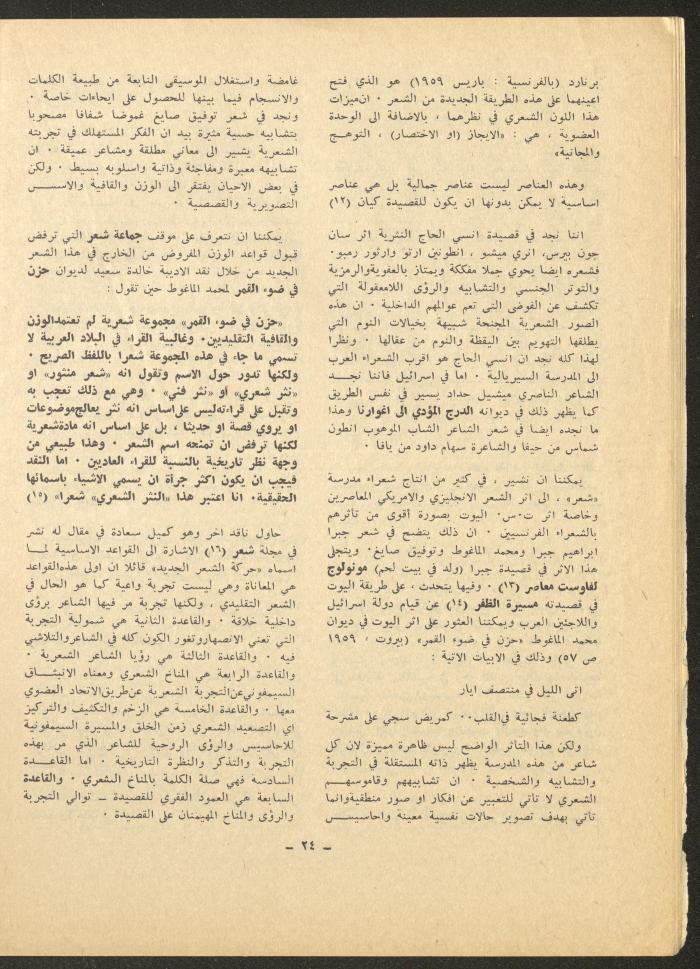 برنارد (بالفرنسية : باريس ١٩٥٩) هو الذي فتح
اعينهما على هذه الطريقة الجديدة من الشعر ٠ ان ميزات
هذا اللون الشعري في نظرهما ، بالاضافة الى الوحدة
العضوية ، هي : «الايجاز (او الاختصار) ، التوهج
والمجانية»
وهذه العناصر ليست عناصر جمالية بل هي عناصر
اساسية لا يمكن بدونها ان يكون للقصيدة كيان (١٢)
اننا نجد في قصيدة انسي الحاج النثرية اثر سان
جون بيرس، انري ميشو ، انطونين ارتو وارتور رمبو٠
فشعره ايضا يحوي جملا مفككة ويمتاز بالعفوية والرمزية
والتوتر الجنسي والتشابيه والرؤى اللامعقولة التي
تكشف عن الفوضى التي تعم عوالمهم الداخلية ٠ ان هذه
الصور الشعرية المجنحة شبيهة بخيالات النوم التي
يطلقها التهويم بين اليقظة والنوم من عقالها ٠ ونظرا
لهذا كله نجد ان انسي الحاج هو اقرب الشعراء العرب
الى المدرسة السيريالية ٠ اما في اسرائيل فاننا نجد
الشاعر الناصري ميشيل حداد يسير في نفس الطريق
كما يظهر ذلك في ديوانه الدرج المؤدي الى اغوارنا وهذا
ما نجده ايضا في شعر الشاعر الشاب الموهوب انطون
شماس من حيفا والشاعرة سهام داود من يافا ٠
يمكننا ان نشير ، في كثير من انتاج شعراء مدرسة
«شعر» ، الى اثر الشعر الانجليزي والامريكي المعاصرين
وخاصة اثر ت٠س٠ اليوت بصورة أقوى من تأثرهم
بالشعراء الفرنسيين ٠ ان ذلك يتضح في شعر جبرا
ابراهيم جبرا ومحمد الماغوط وتوفيق صايغ٠ ويتجلى
هذا الاثر في قصيدة جبرا (ولد في بيت لحم) مونولوج
لفاوست معاصر (١٣) ٠ وفيها يتحدث ، على طريقة اليوت
في قصيدته مسيرة الظفر (١٤) عن قيام دولة اسرائيل
واللاجئين العرب ويمكننا العثور على اثر اليوت في ديوان
محمد الماغوط «حزن في ضوء القمر» (بيروت ، ١٩٥٩
ص ٥٧) وذلك في الابيات الاتية :
اتى الليل في منتصف ايار
كطعنة فجائية في القلب٠٠ كمريض سجي على مشرحة
ولكن هذا التاثر الواضح ليس ظاهرة مميزة لان كل
شاعر من هذه المدرسة يظهر ذاته المستقلة في التجربة
والتشابيه والشخصية ٠ ان تشابيههم وقاموسهم
الشعري لا تاتي للتعبير عن افكار او صور منطقية وانما
تأتي بهدف تصوير حالات نفسية معينة واحاسيس
غامضة واستغلال الموسيقى النابعة من طبيعة الكلمات
والانسجام فيما بينها للحصول على ايحاءات خاصة ٠
ونجد في شعر توفيق صايغ غموضا شفافا مصحوبا
بتشابيه حسية مثيرة بيد ان الفكر المستهلك في تجربته
الشعرية يشير الى معاني مطلقة ومشاعر عميقة ٠ ان
تشابيهه معبرة ومفاجئة وذاتية واسلوبه بسيط ٠ ولكن
في بعض الاحيان يفتقر الى الوزن والقافية والاسس
التصويرية والقصصية ٠
يمكننا ان نتعرف على موقف جماعة شعر التي ترفض
قبول قواعد الوزن المفروض من الخارج في هذا الشعر
الجديد من خلال نقد الاديبة خالدة سعيد لديوان حزن
في ضوء القمر لمحمد الماغوط حين تقول :
«حزن في ضوء القمر» مجموعة شعرية لم تعتمد الوزن
والقافية التقليديين٠ وغالبية القراء في البلاد العربية لا
تسمي ما جاء في هذه المجموعة شعرا باللفظ الصريح ٠
ولكنها تدور حول الاسم وتقول انه «شعر منثور» او
«نثر شعري» أو «نثر فني» ٠ وهي مع ذلك تعجب به
وتقبل على قراءته ليس على اساس انه نثر يعالج موضوعات
او يروي قصة او حديثا ، بل على اساس انه مادة شعرية
لكنها ترفض ان تمنحه اسم الشعر ٠ وهذا طبيعي من
وجهة نظر تاريخية بالنسبة للقراء العاديين ٠ اما النقد
فيجب ان يكون اكثر جرأة ان يسمي الاشياء باسمائها
الحقيقية٠ انا اعتبر هذا «النثر الشعري» شعرا» (١٥)
حاول ناقد اخر وهو كميل سعادة في مقال له نشر
في مجلة شعر (١٦) الاشارة الى القواعد الاساسية لما
اسماه «حركة الشعر الجديد» قائلا ان اولى هذه القواعد
هي المعاناة وهي ليست تجربة واعية كما هو الحال في
الشعر التقليدي ، ولكنها تجربة مر فيها الشاعر برؤى
داخلية خلاقة ٠ والقاعدة الثانية هي شمولية التجربة
التي تعني الانصهار وتغور الكون كله في الشاعر والتلاشي
فيه ٠ والقاعدة الثالثة هي رؤيا الشاعر الشعرية ٠
والقاعدة الرابعة هي المناخ الشعري ومعناه الانبثاق
السيمفوني عن التجربة الشعرية عن طريق الاتحاد العضوي
معها ٠ والقاعدة الخامسة هي الزخم والتكثيف والتركيز
اي التصعيد الشعري زمن الخلق والمسيرة السيمفونية
للاحاسيس والرؤى الروحية للشاعر الذي مر بهذه
التجربة والتذكر والنظرة التاريخية ٠ اما القاعدة
السادسة فهي صلة الكلمة بالمناخ الشعري ٠ والقاعدة
السابعة هي العمود الفقري للقصيدة ــ توالي التجربة
والرؤى والمناخ المهيمنان على القصيدة ٠
ــ ٢٤ ــ